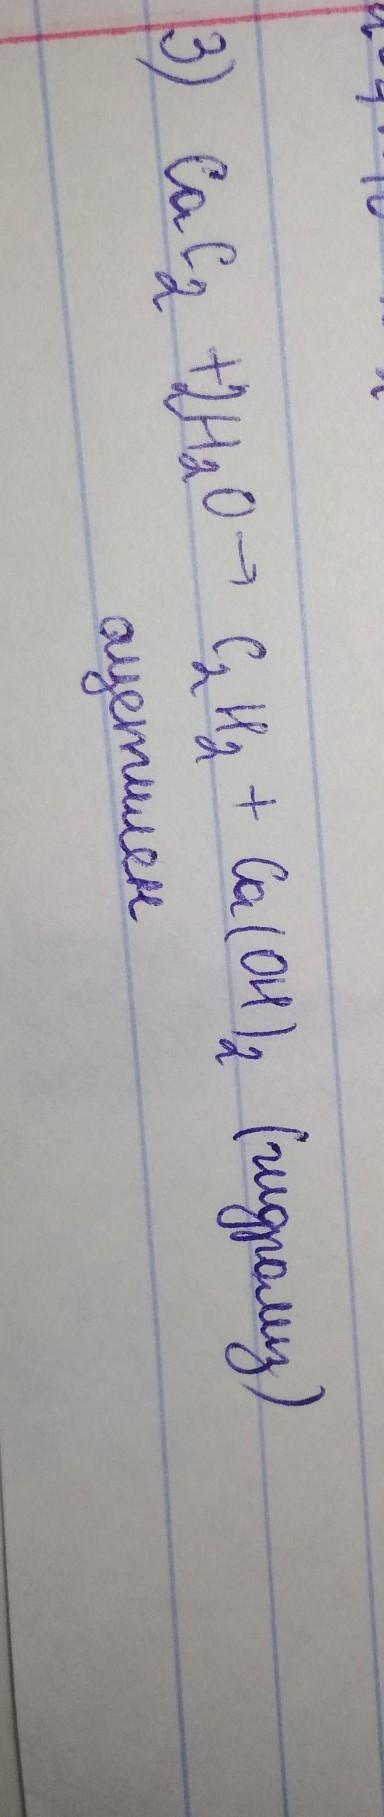 3) CaC₂ + 2H₂O → C₂H₂ + Ca(OH)₂ (гидролиз)
ацетилен